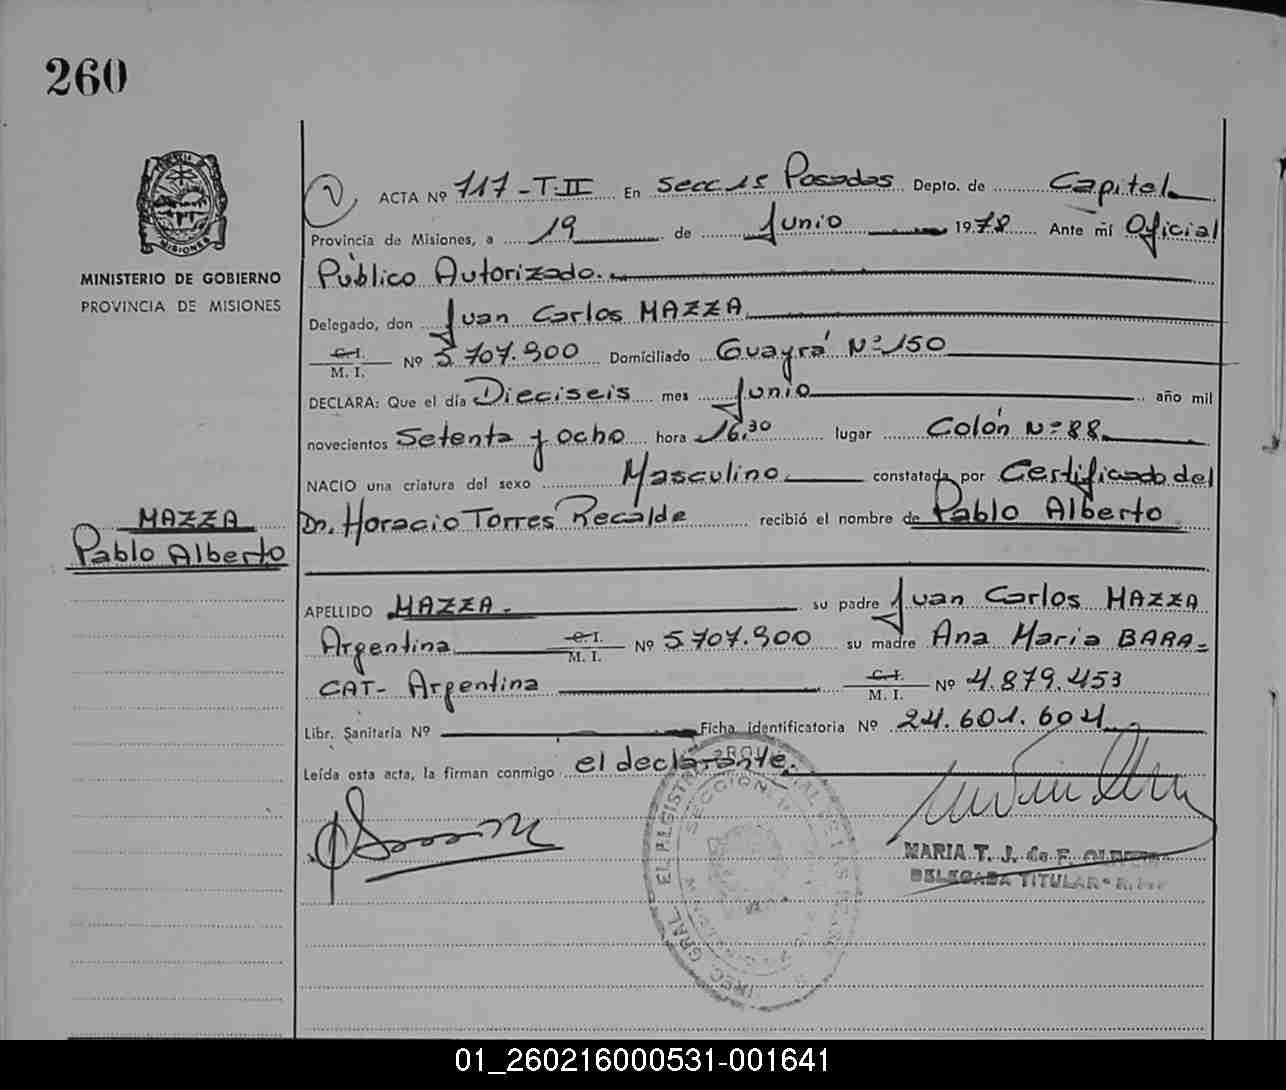 260
MINISTERIO DE GOBIERNO
PROVINCIA DE MISIONES
MAZZA
Pablo Alberto
ACTA Nº 717-T.II En secc 1s Posadas Depto. de Capital
Provincia de Misiones, a 19 de Junio 1978 Ante mí Oficial
Público Autorizado.
Delegado, don Juan Carlos MAZZA
C. I. M. I. Nº 5.707.900 Domiciliado Guayrá Nº 150
DECLARA: Que el día Dieciseis mes Junio año mil
novecientos Setenta y ocho hora 16,30 lugar Colón Nº 88
NACIO una criatura del sexo Masculino constatada por Certificado del
Dr. Horacio Torres Recalde recibió el nombre de Pablo Alberto
APELLIDO MAZZA. su padre Juan Carlos MAZZA
Argentina C. I. M. I. Nº 5.707.900 su madre Ana Maria BARA=
CAT- Argentina C. I. M. I. Nº 4.879.453
Libr. Sanitaria Nº Ficha identificatoria Nº 24.601.604
Leída esta acta, la firman conmigo el declarante.
MARIA T. J. de F.
DELEGADA TITULAR
01_260216000531-001641